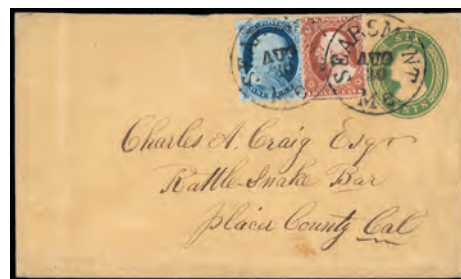 SEARSMONT
AUG
20
Me.
CENTS
Charles A. Craig Esqr
Rattle-Snake Bar
Placer County Cal